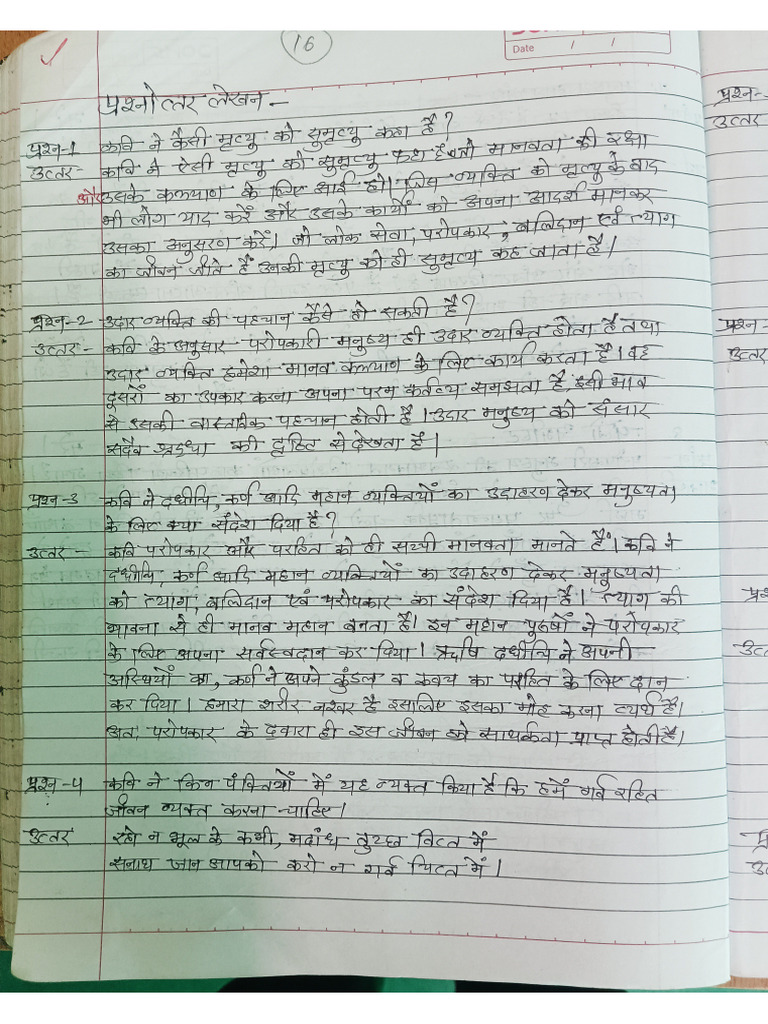 16
Date / /
प्रश्नोत्तर लेखन -
प्रश्न-1 कवि ने कैसी मृत्यु को सुमृत्यु कहा है?
उत्तर- कवि ने ऐसी मृत्यु को सुमृत्यु कहा है जो मानवता की रक्षा
और उसके कल्याण के लिए आई हो। जिस व्यक्ति को मृत्यु के बाद
भी लोग याद करें और उसके कार्यों को अपना आदर्श मानकर
उसका अनुसरण करें। जो लोक सेवा, परोपकार, बलिदान एवं त्याग
का जीवन जीते हैं उनकी मृत्यु को ही सुमृत्यु कह जाता है।
प्रश्न-2 उदार व्यक्ति की पहचान कैसे हो सकती है?
उत्तर- कवि के अनुसार परोपकारी मनुष्य ही उदार व्यक्ति होता है तथा
उदार व्यक्ति हमेशा मानव कल्याण के लिए कार्य करता है। वह
दूसरों का उपकार करना अपना परम कर्तव्य समझता है, इसी भाव
से उसकी वास्तविक पहचान होती है। उदार मनुष्य को संसार
सदैव श्रद्धा की दृष्टि से देखता है।
प्रश्न-3 कवि ने दधीचि, कर्ण आदि महान व्यक्तियों का उदाहरण देकर मनुष्यता
के लिए क्या संदेश दिया है?
उत्तर- कवि परोपकार और परहित को ही सच्ची मानवता मानते हैं। कवि ने
दधीचि, कर्ण आदि महान व्यक्तियों का उदाहरण देकर मनुष्यता
को त्याग, बलिदान एवं परोपकार का संदेश दिया है। त्याग की
भावना से ही मानव महान बनता है। इन महान पुरुषों ने परोपकार
के लिए अपना सर्वस्वदान कर दिया। ऋषि दधीचि ने अपनी
अस्थियों का, कर्ण ने अपने कुंडल व कवच का परहित के लिए दान
कर दिया। हमारा शरीर नश्वर है इसलिए इसका मोह करना व्यर्थ है।
अतः परोपकार के द्वारा ही इस जीवन को सार्थकता प्राप्त होती है।
प्रश्न-4 कवि ने किन पंक्तियों में यह व्यक्त किया है कि हमें गर्व रहित
जीवन व्यक्त करना चाहिए।
उत्तर रहो न भूल के कभी, मदांध तुच्छ वित्त में
सनाथ जान आपको करो न गर्व चित्त में।
प्रश्न-
उत्तर
प्रश्न-
उत्तर